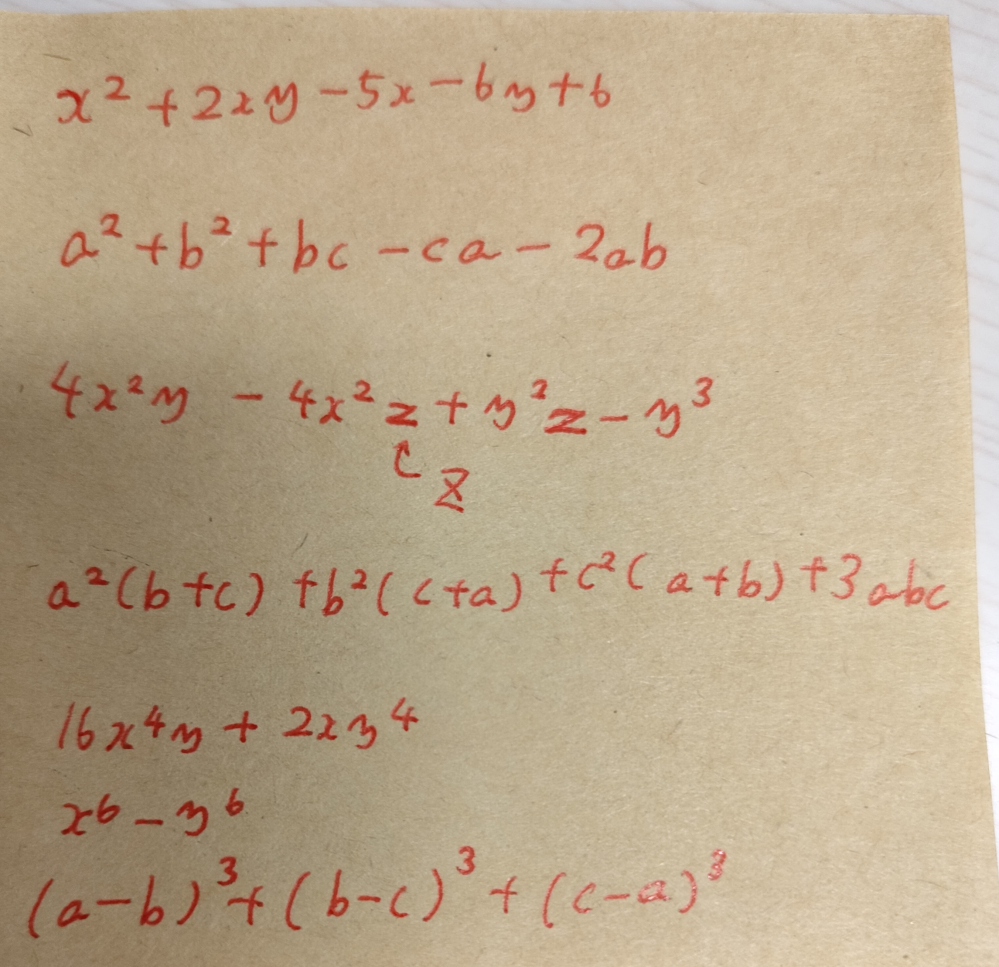 x² + 2xy - 5x - 6y + 6
a² + b² + bc - ca - 2ab
4x²y - 4x²z + y²z - y³
z
a²(b+c) + b²(c+a) + c²(a+b) + 3abc
16x⁴y + 2xy⁴
x⁶ - y⁶
(a-b)³ + (b-c)³ + (c-a)³